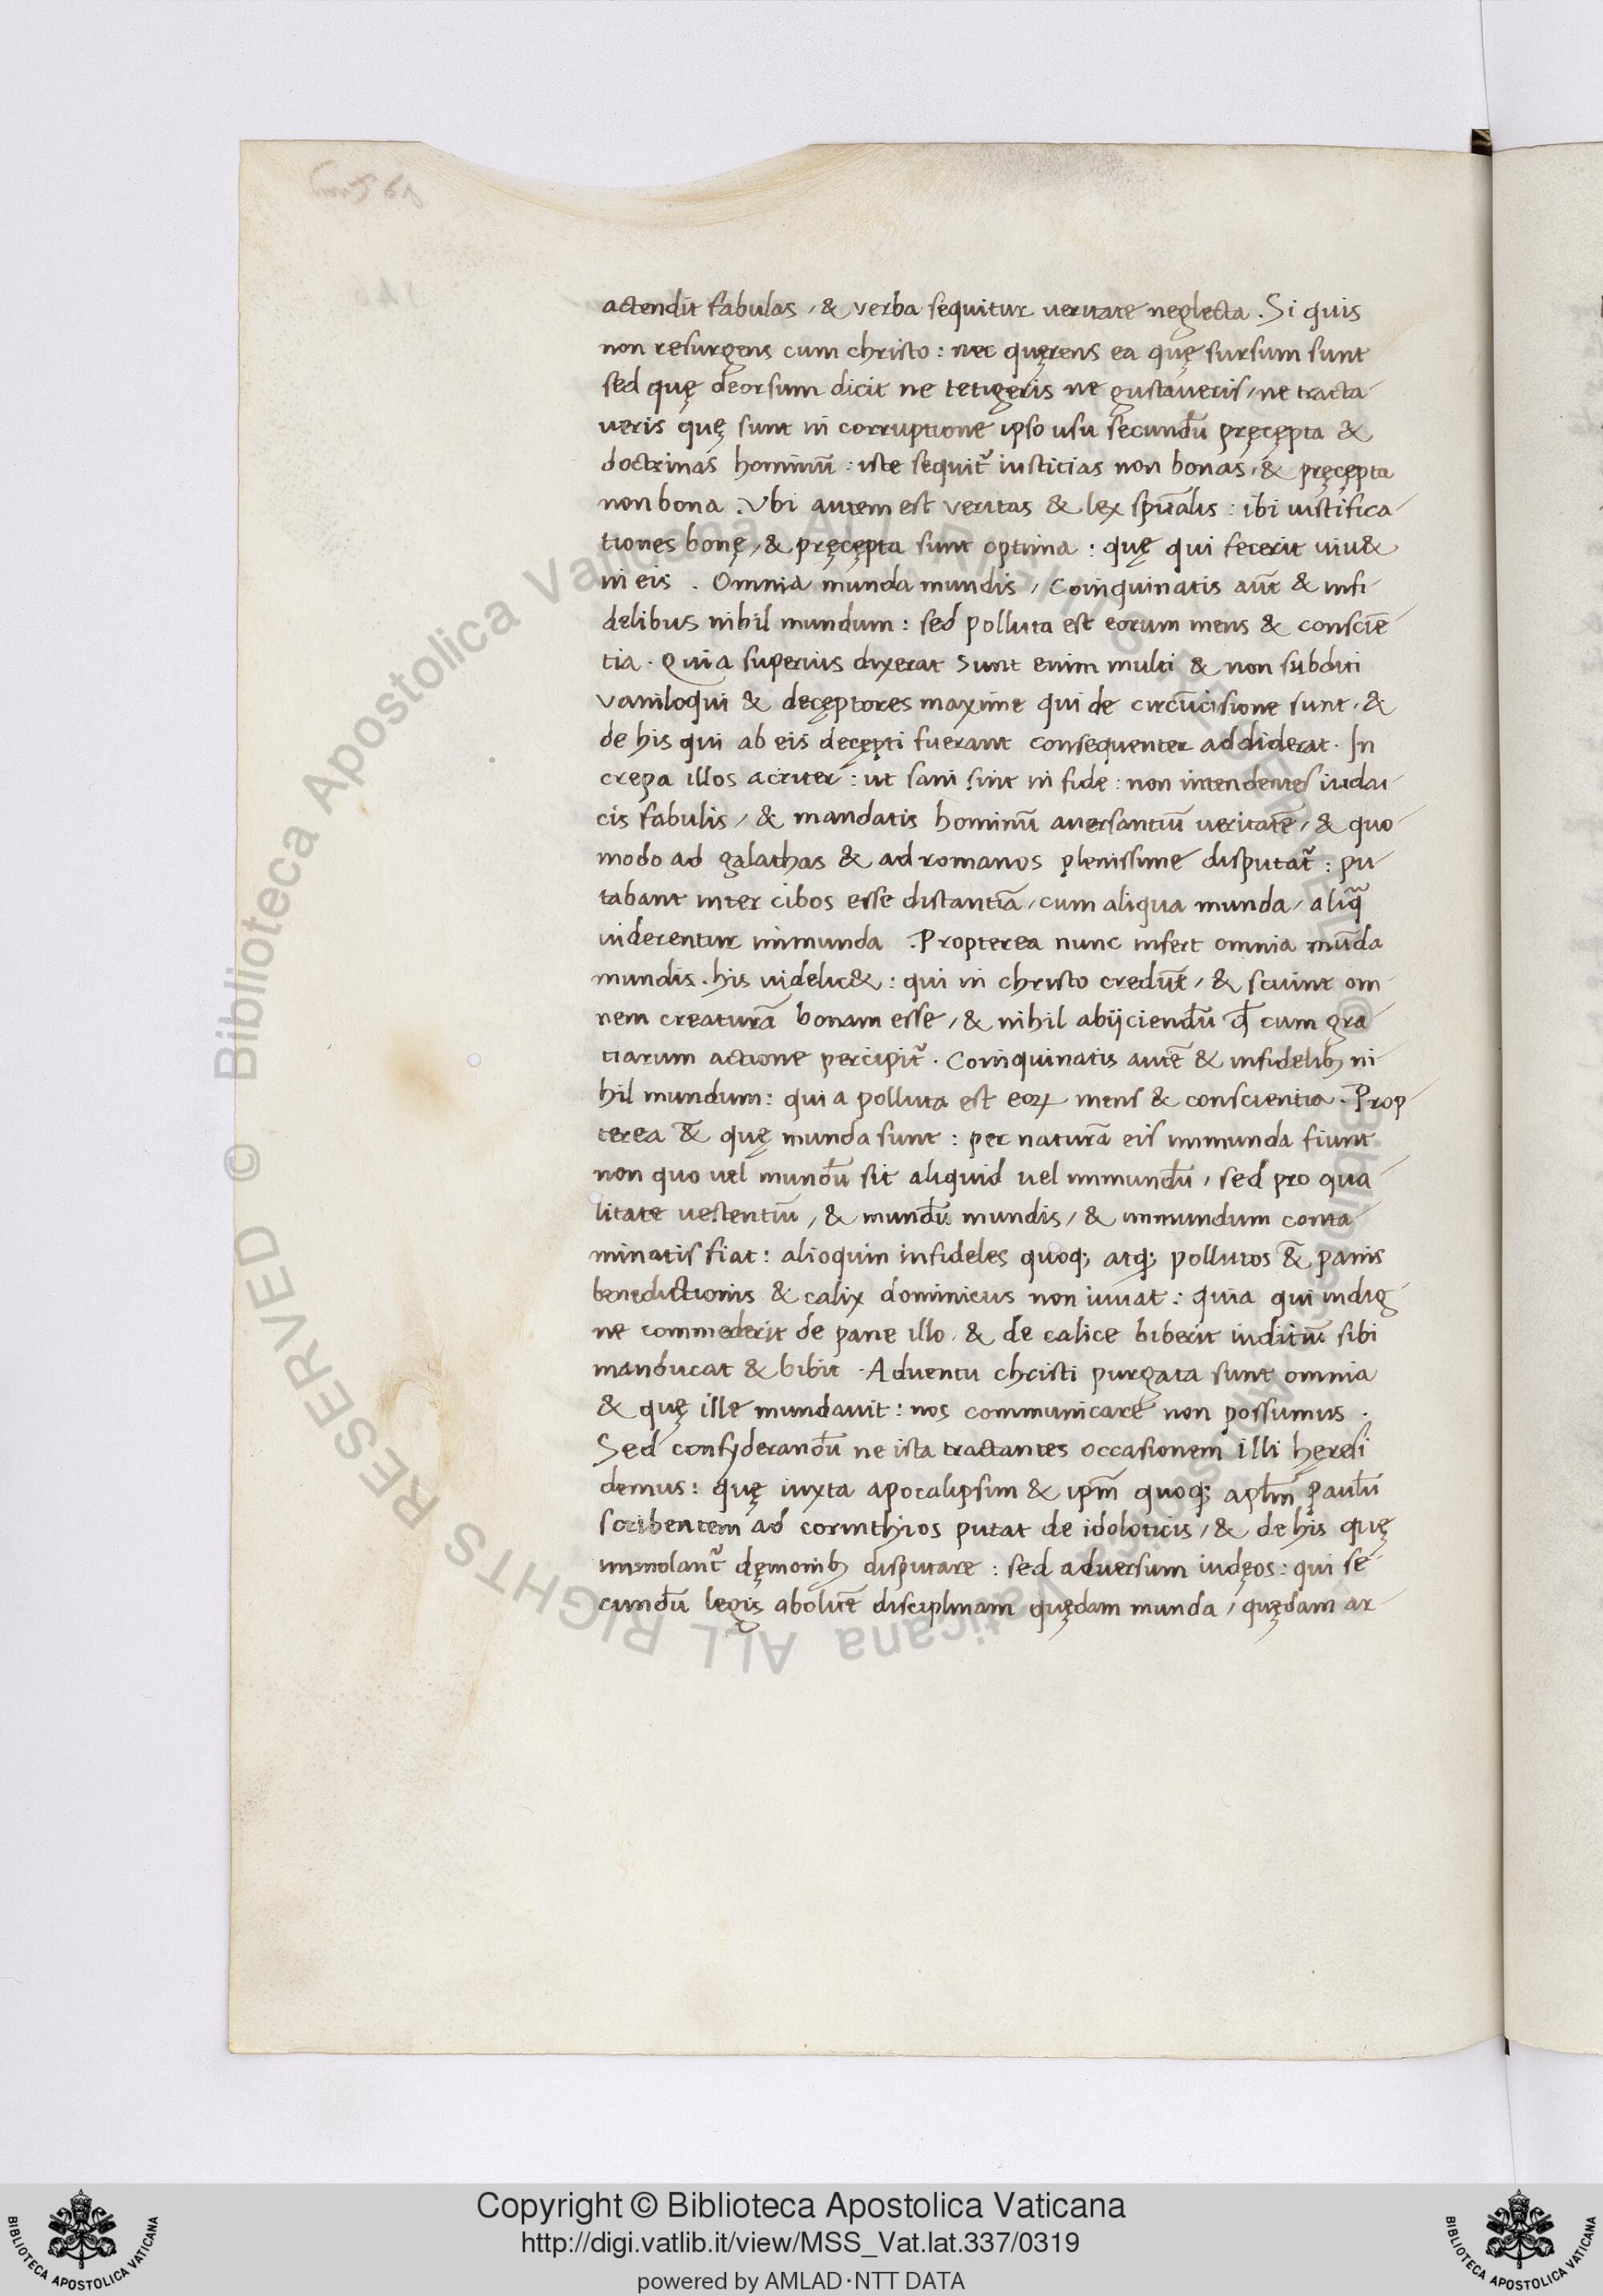 actendit fabulas, & verba sequitur veritate neglecta. Si quis
non resurgens cum christo: nec quęrens ea quę sursum sunt
sed quę deorsum dicit ne tetigeris ne gustaveris, ne tracta-
veris quę sunt in corruptione ipso usu secundū pręcępta &
doctrinas hominū: iste sequit᷑ iusticias non bonas, & pręcępta
non bona. Vbi autem est veritas & lex spūalis: ibi iustifica-
tiones bonę, & pręcępta sunt optima: quę qui fecerit viv&
in eis. Omnia munda mundis, Coinquinatis aūt & infi-
delibus nihil mundum: sed polluta est eorum mens & consciē
tia. Quia superius dixerat Sunt enim multi & non subditi
vaniloqui & decęptores maxime qui de circūcisione sunt, &
de his qui ab eis decępti fuerant consequenter addiderat. In
crepa illos acriter: ut sani sint in fide: non intendentes iudai-
cis fabulis, & mandatis hominū aversantiū veritatē, & quo-
modo ad galathas & ad romanos plenissime disputat᷑: pu-
tabant inter cibos esse distantiā, cum aliqua munda, aliq̄
viderentur immunda. Propterea nunc infert omnia mūda
mundis. his videlic&: qui in christo credūt, & sciunt om-
nem creaturā bonam esse, & nihil abijciendū qđ cum gra-
tiarum actione percipit᷑. Coinquinatis autē & infidelibꝫ ni-
hil mundum: quia polluta est eoꝝ mens & conscientia. Prop-
terea &̄ quę munda sunt: per naturā eis immunda fiunt
non quo vel mundū sit aliquid vel immundū, sed pro qua-
litate vestentiū, & mundū mundis, & immundum conta-
minatis fiat: alioquin infideles quoqꝫ atqꝫ pollutos &̄ panis
benedictionis & calix dominicus non iuvat: quia qui indig-
ne commederit de pane illo, & de calice biberit iuditiū sibi
manducat & bibit. Adventu christi purgata sunt omnia
& quę ille mundavit: nos communicare non possumus.
Sed consyderandū ne ista tractantes occasionem illi hęresi
demus: quę iuxta apocalipsim & ipm̄ quoqꝫ aplm̄ paulū
scribentem ad corinthios putat de idoloticis, & de his quę
immolant᷑ dęmonibꝫ disputare: sed adversum iudęos: qui se-
cundū legis abolitē disciplinam quędam munda, quędam ar-
Copyright © Biblioteca Apostolica Vaticana
http://digi.vatlib.it/view/MSS_Vat.lat.337/0319
powered by AMLAD·NTT DATA
BIBLIOTECA APOSTOLICA VATICANA
BIBLIOTECA APOSTOLICA VATICANA
© Biblioteca Apostolica Vaticana ALL RIGHTS RESERVED
© Biblioteca Apostolica Vaticana ALL RIGHTS RESERVED